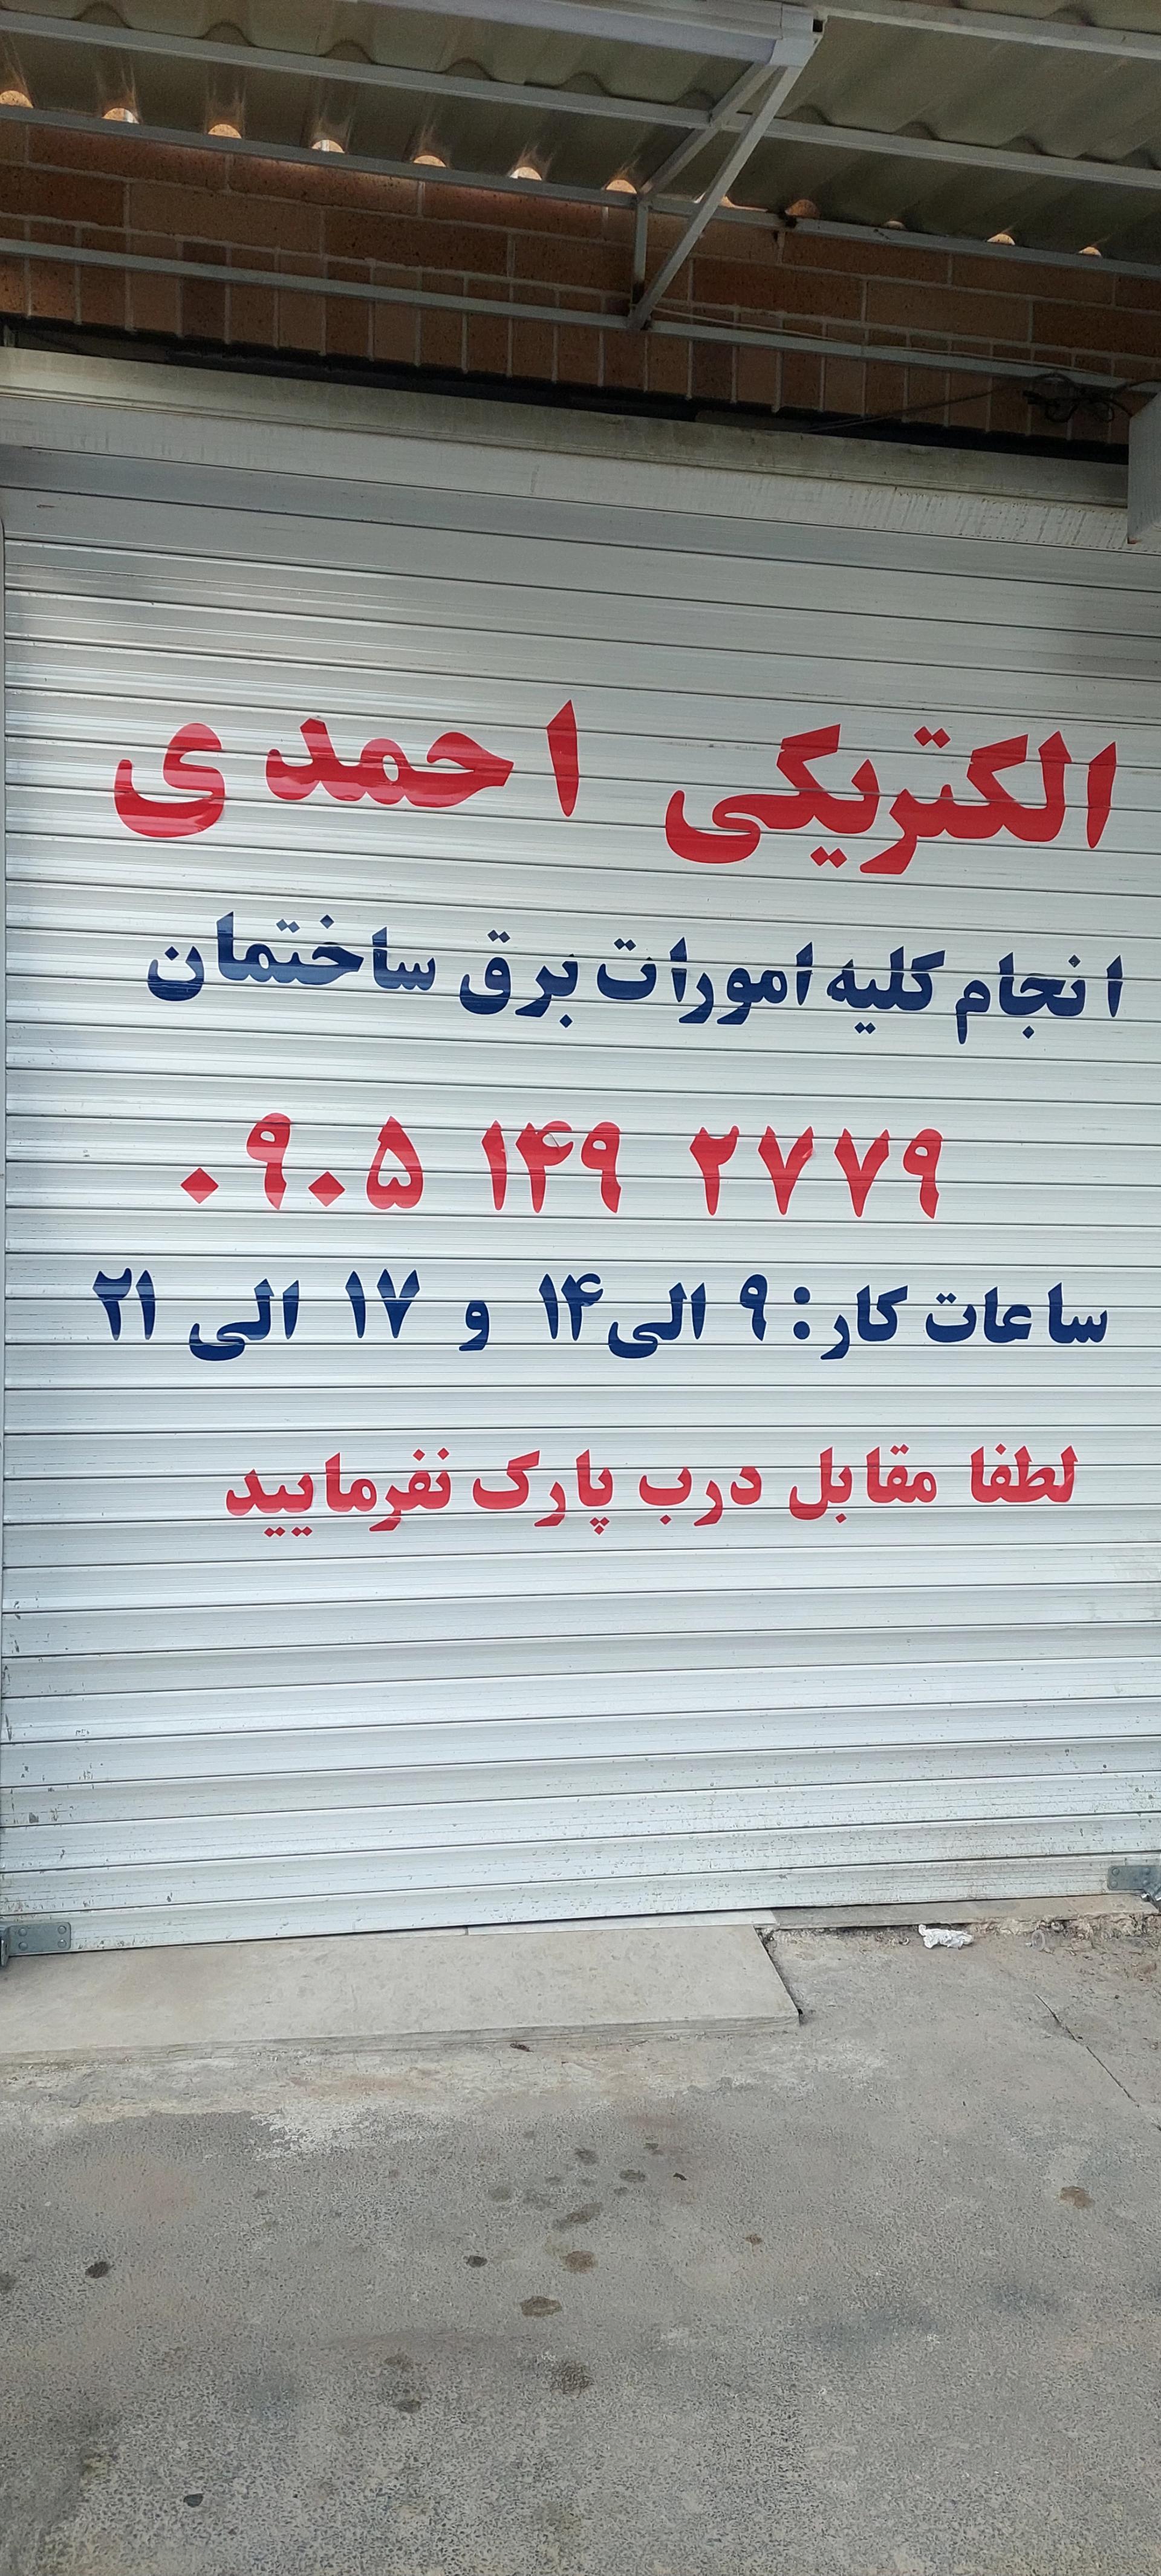 الکتریکی احمدی
انجام کلیه امورات برق ساختمان
۰۹۰۵ ۱۴۹ ۲۷۷۹
ساعات کار: ۹ الی ۱۴ و ۱۷ الی ۲۱
لطفا مقابل درب پارک نفرمایید